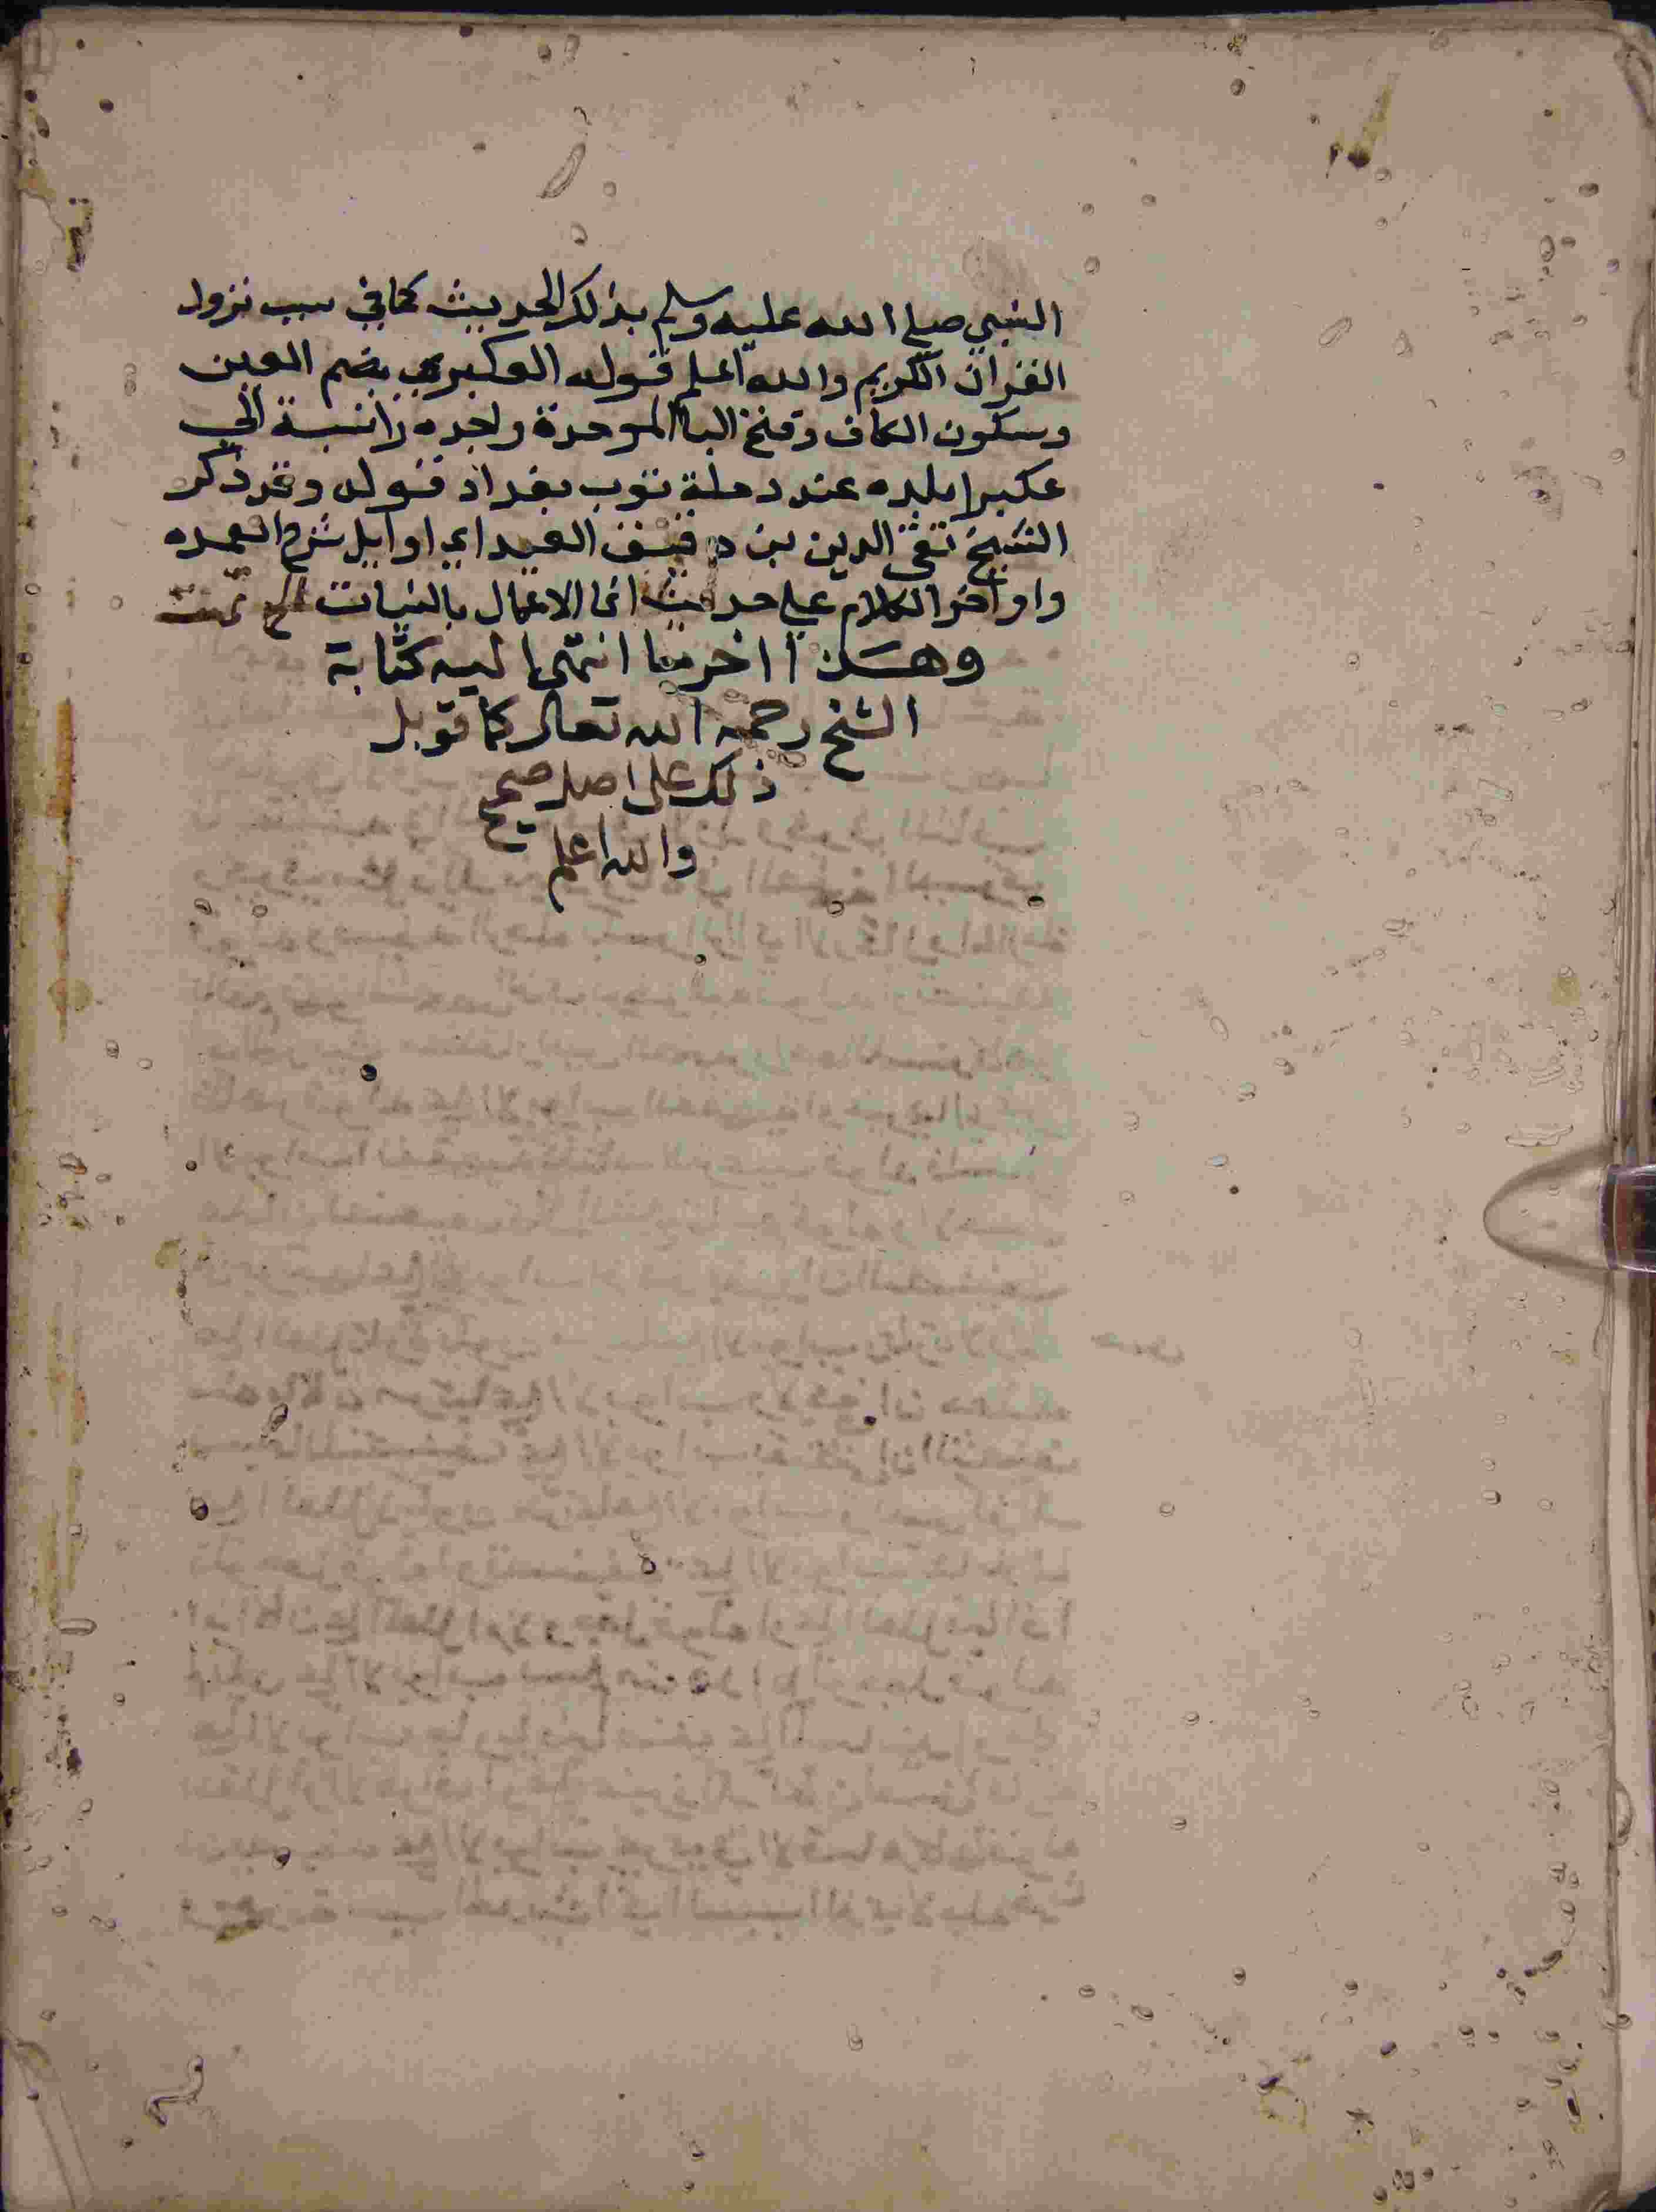 النبي صلى الله عليه وسلم بذلك الحديث كما في سبب نزول
القران الكريم والله اعلم قوله العكبري بضم العين
وسكون الكاف وفتح البا الموحدة وبعده را نسبة الي
عكبرا بلده عند دجلة قرب بغداد قوله وقد ذكر
الشيخ تقي الدين بن دقيق العيد اي اوايل شرح العمده
واواخر الكلام علي حديث انما الاعمال بالنيات الخ تمت
وهذا اخر ما انتهى اليه كتابة
الشيخ رحمه الله تعالى كما قوبل
ذلك على اصل صحيح
والله اعلم